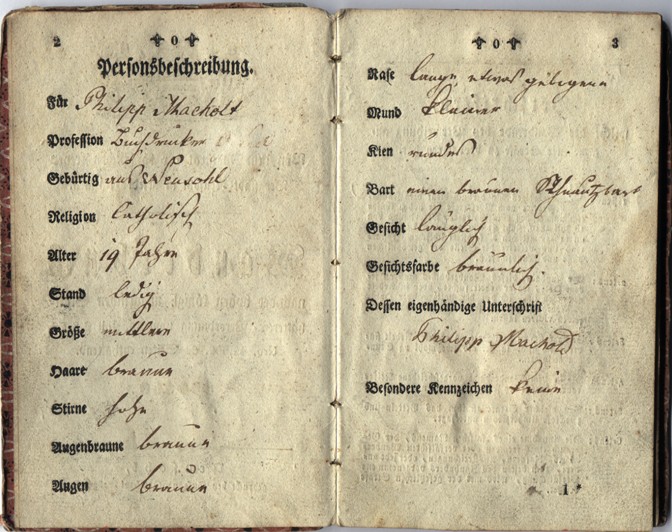 2
Personsbeschreibung.
Für Philipp Macholt
Profession Buchdrucker
Gebürtig aus Neusohl
Religion Catholisch
Alter 19 Jahre
Stand ledig
Größe mittlere
Haare braune
Stirne hohe
Augenbraune braune
Augen braune
3
Nase lange etwas gebogene
Mund kleiner
Kien rundes
Bart einen braunen Schnautzbart
Gesicht länglich
Gesichtsfarbe bräunlich.
Dessen eigenhändige Unterschrift
Philipp Machold
Besondere Kennzeichen keine
1*